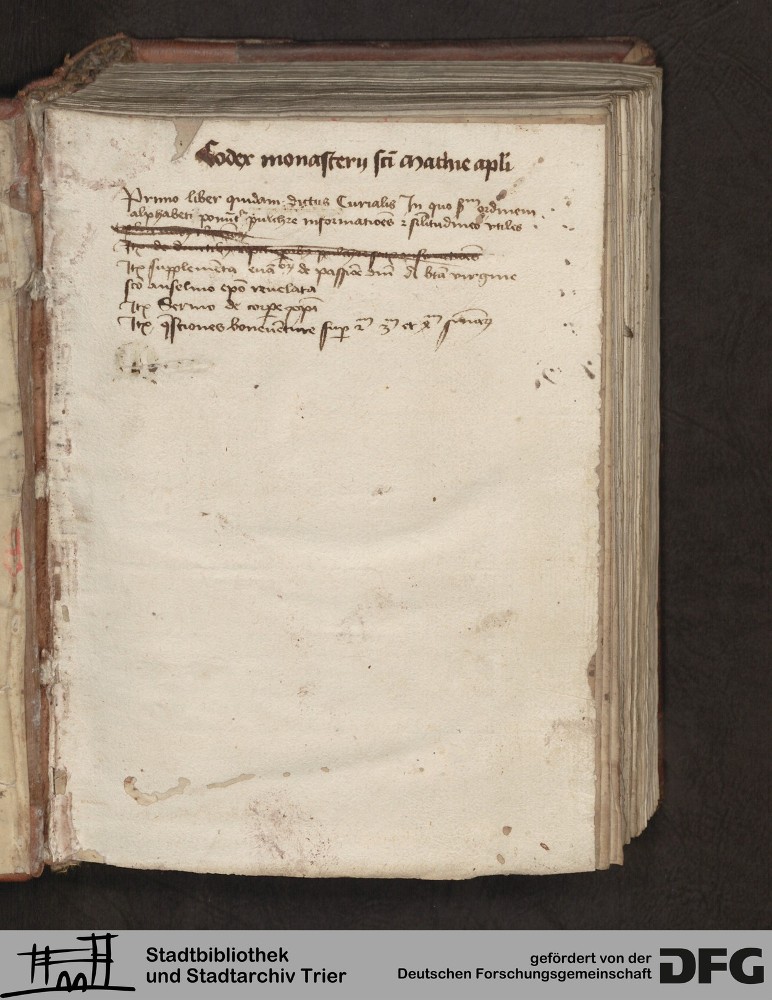 Codex monasterij scī Mathie apli
Primo liber quidam dictus Curialis In quo scdm ordinem
alphabeti ponūt pulchre informatiōes ⁊ silitudines vtiles
Itē de
Itē supplementa euā de passiōe dnī a btā virgine
scō anselmo epō reuelata
Itē Sermo de corpe xpī
Itē qstiones bonauēture sup 2m 3m et 4m
Stadtbibliothek
und Stadtarchiv Trier
gefördert von der
Deutschen Forschungsgemeinschaft
DFG